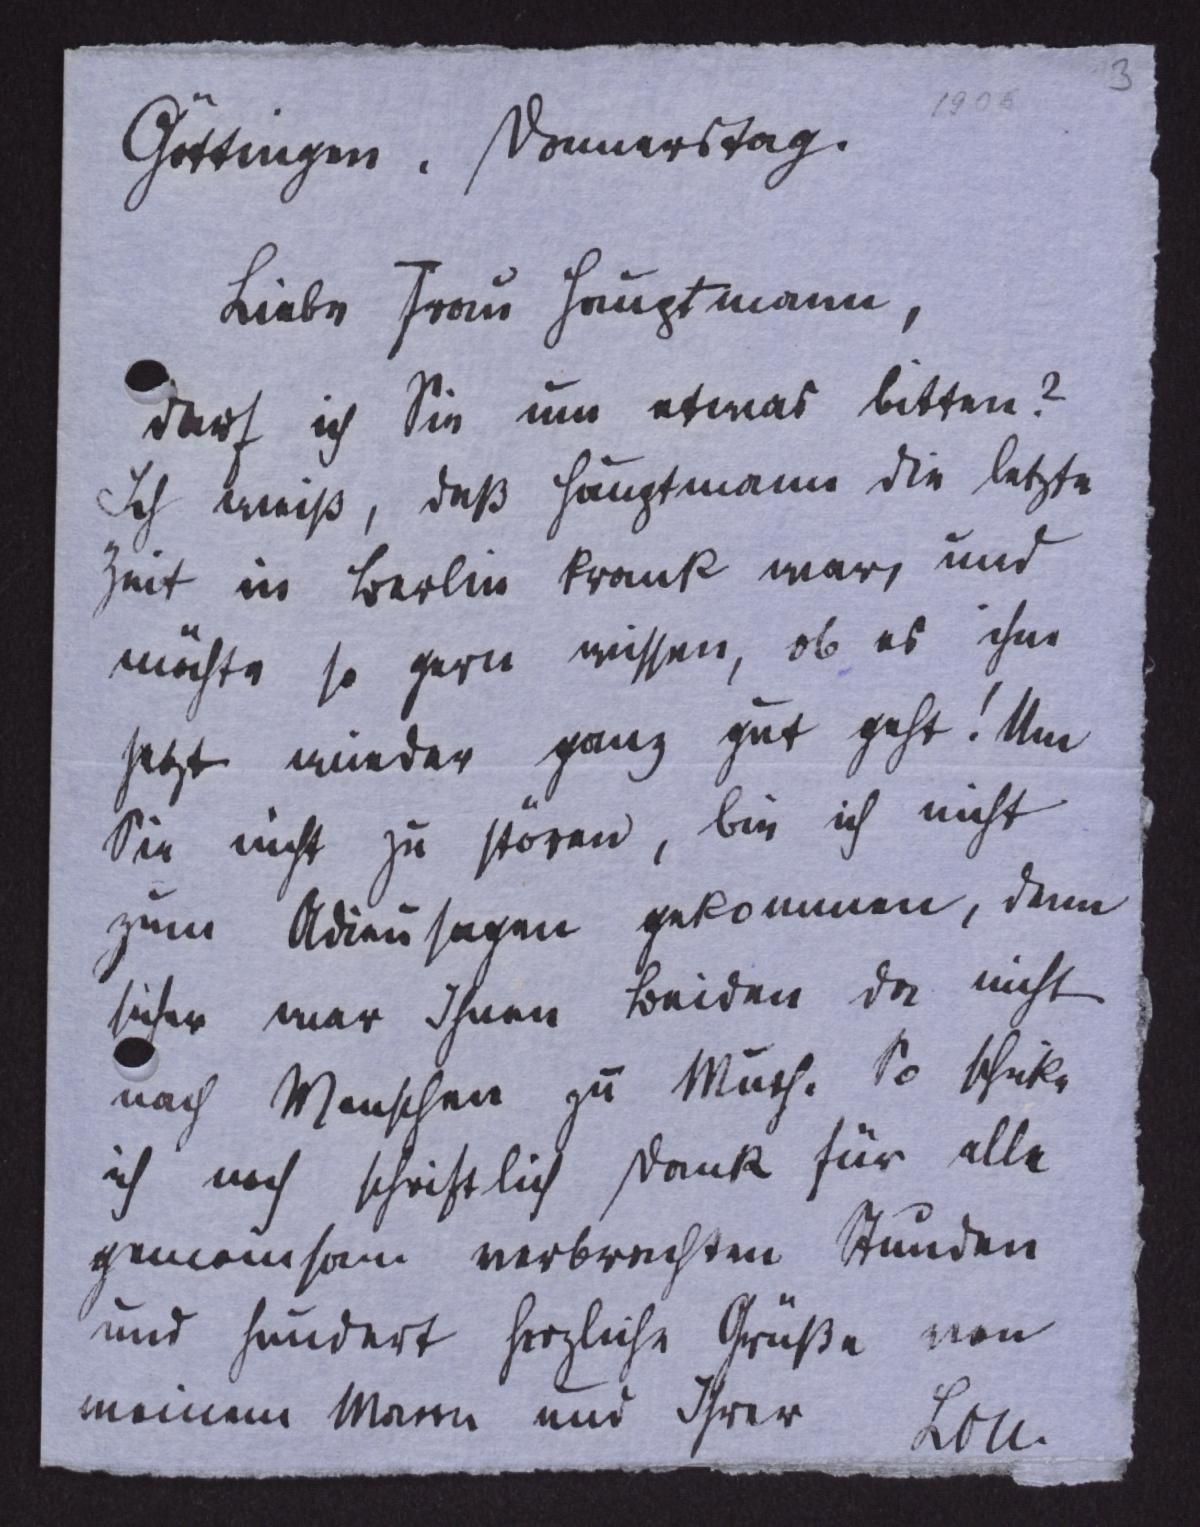 3
1906
Göttingen. Donnerstag.
Liebe Frau Hauptmann,
darf ich Sie um etwas bitten?
Ich weiß, daß Hauptmann die letzte
Zeit in Berlin krank war, und
möchte so gern wissen, ob es ihm
jetzt wieder ganz gut geht! Um
Sie nicht zu stören, bin ich nicht
zum Adieusagen gekommen, denn
sicher war Ihnen Beiden da nicht
nach Menschen zu Muth. So schicke
ich noch schriftlich Dank für alle
gemeinsam verbrachten Stunden
und hundert herzliche Grüße von
meinem Mann und Ihrer
Lou.